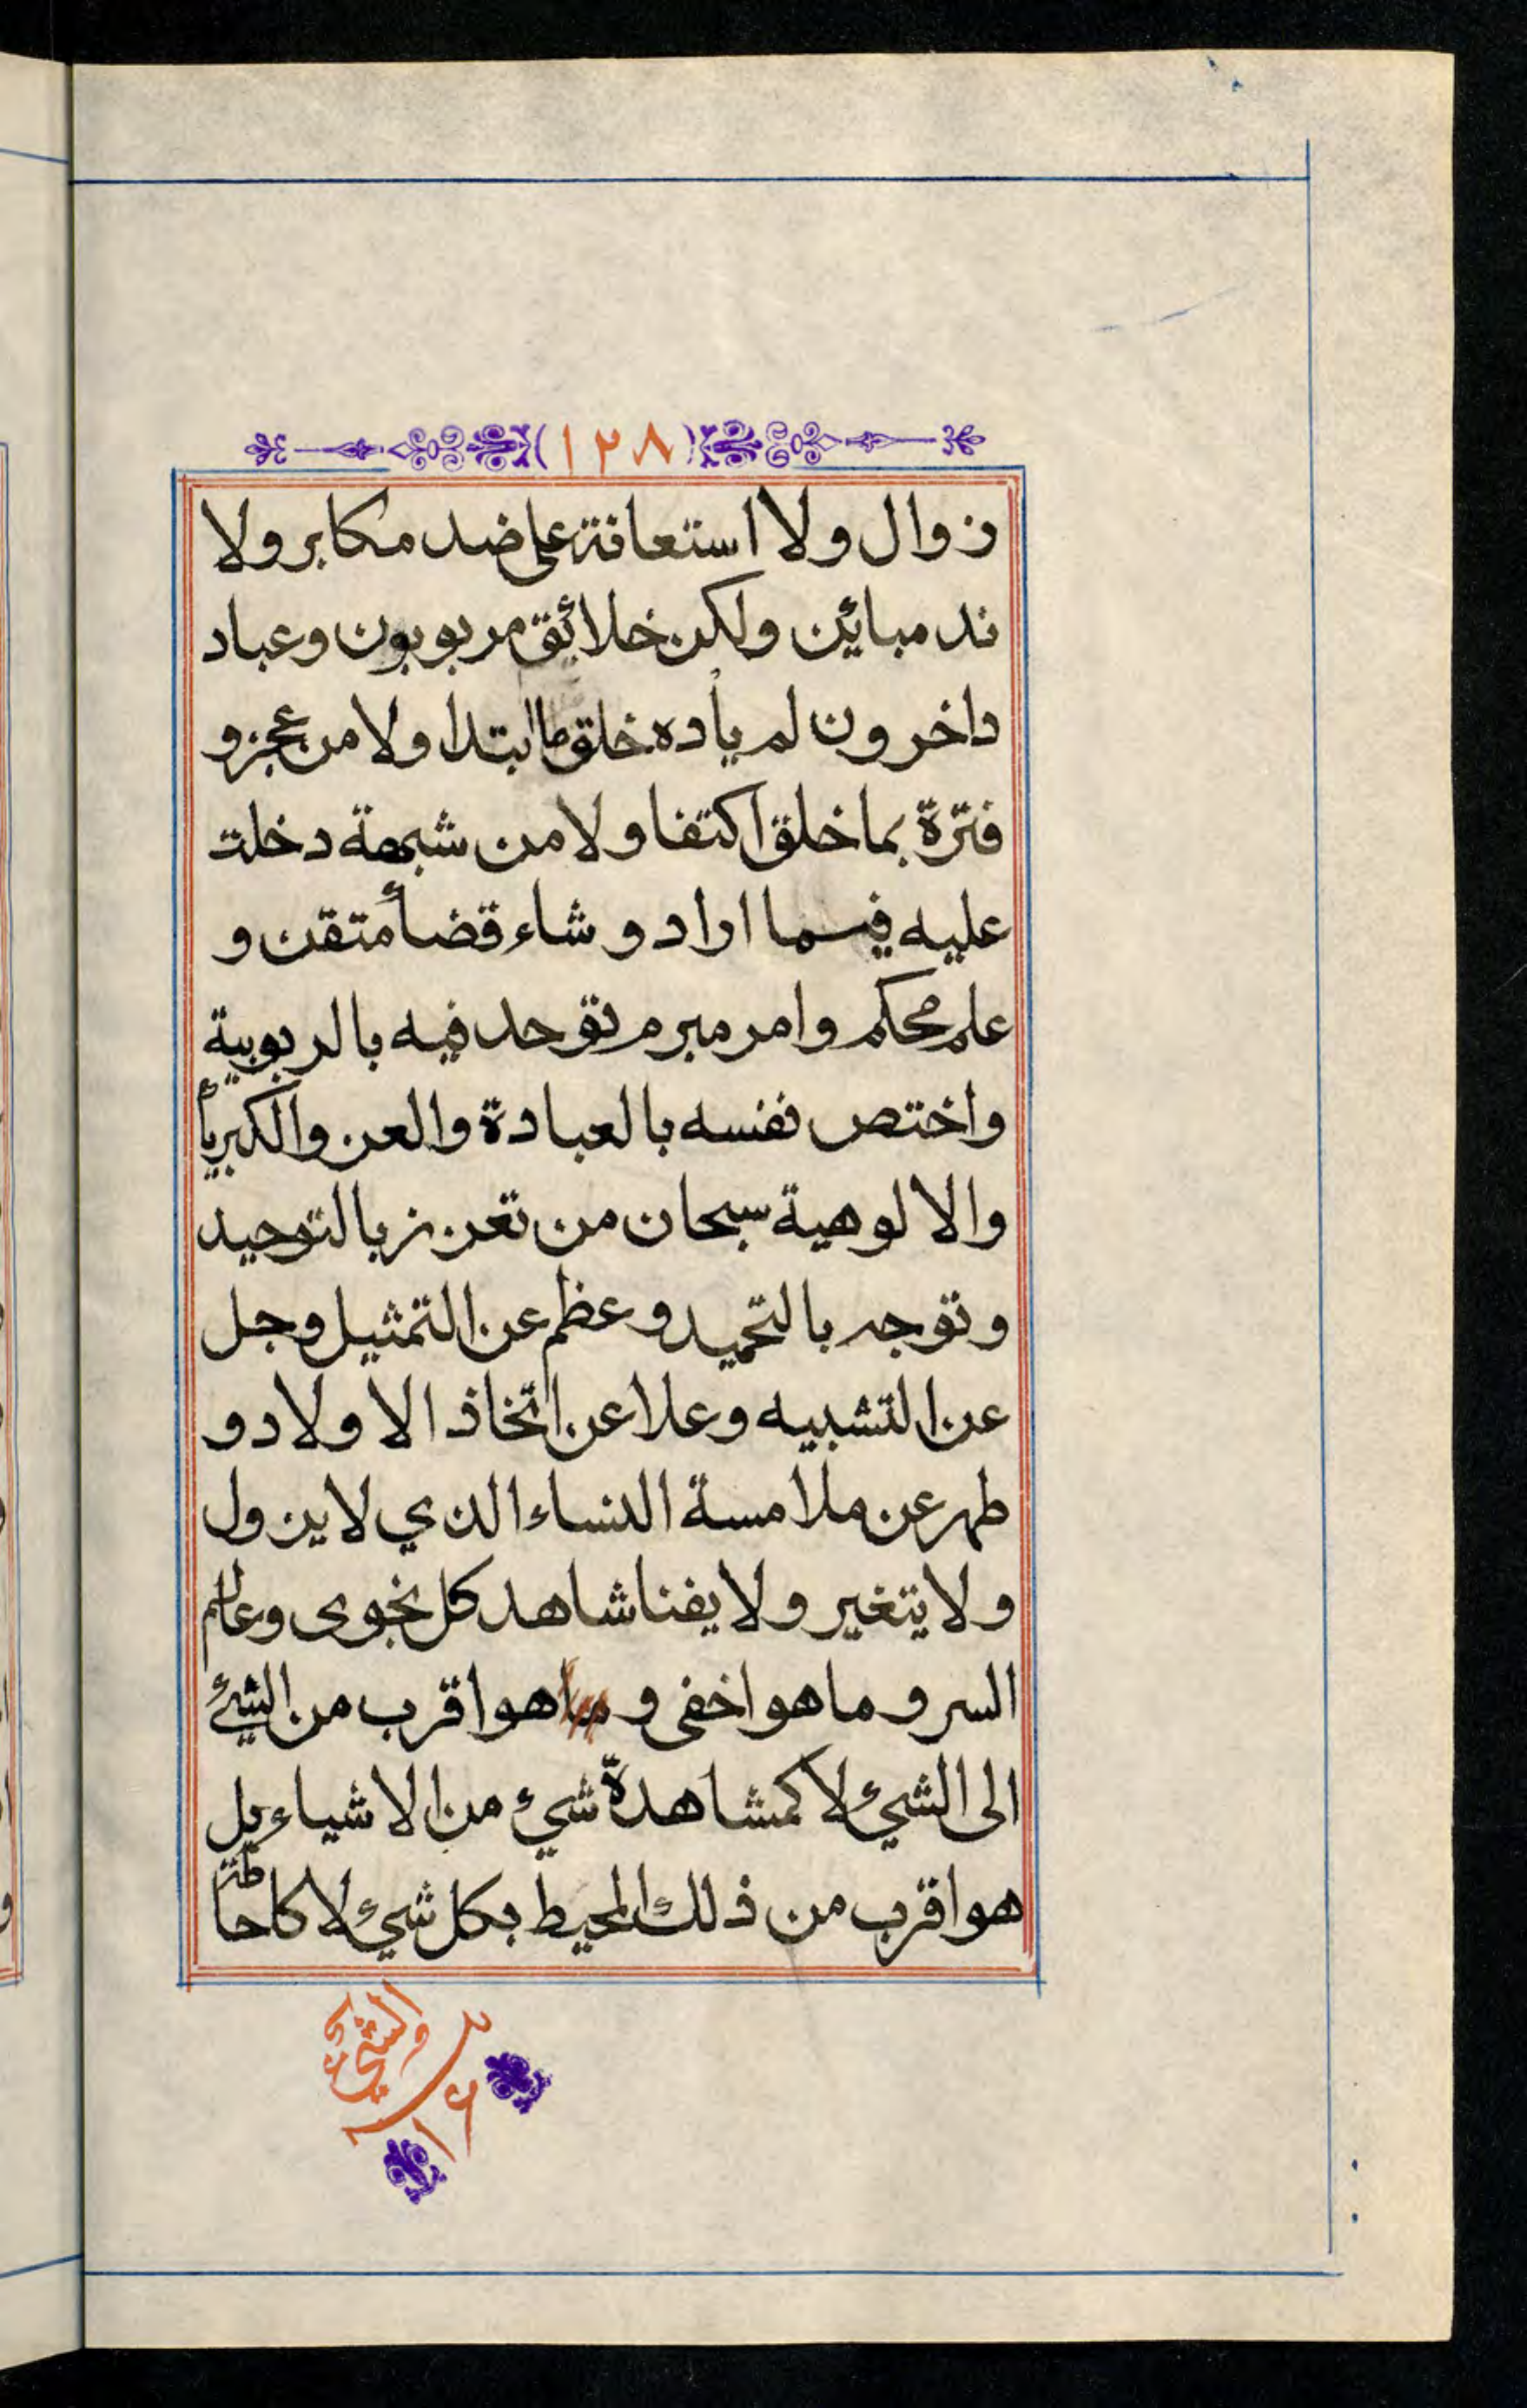 (١٢٨)
زوال ولا استعانة على ضد مكابر ولا
ند مبائن ولكن خلائق مربوبون وعباد
داخرون لم يأده خلق ما ابتدا ولا من عجز و
فترة بما خلق اكتفا ولا من شبهة دخلت
عليه فيما اراد و شاء قضأ متقن و
علم محكم وامر مبرم توحد فيه بالربوبية
واختص نفسه بالعبادة والعز والكبريأ
والالوهية سبحان من تعزز بالتوحيد
وتوجه بالتحميد وعظم عن التمثيل وجل
عن التشبيه وعلا عن اتخاذ الاولاد و
طهر عن ملامسة النساء الذي لا يزول
ولا يتغير ولا يفنا شاهد كل نجوى وعالم
السر و ما هو اخفى و ما هو اقرب من الشئ
الى الشيء لا كمشاهدة شيء من الاشياء بل
هو اقرب من ذلك المحيط بكل شيء لا كاحاطة
والشيء
١٦